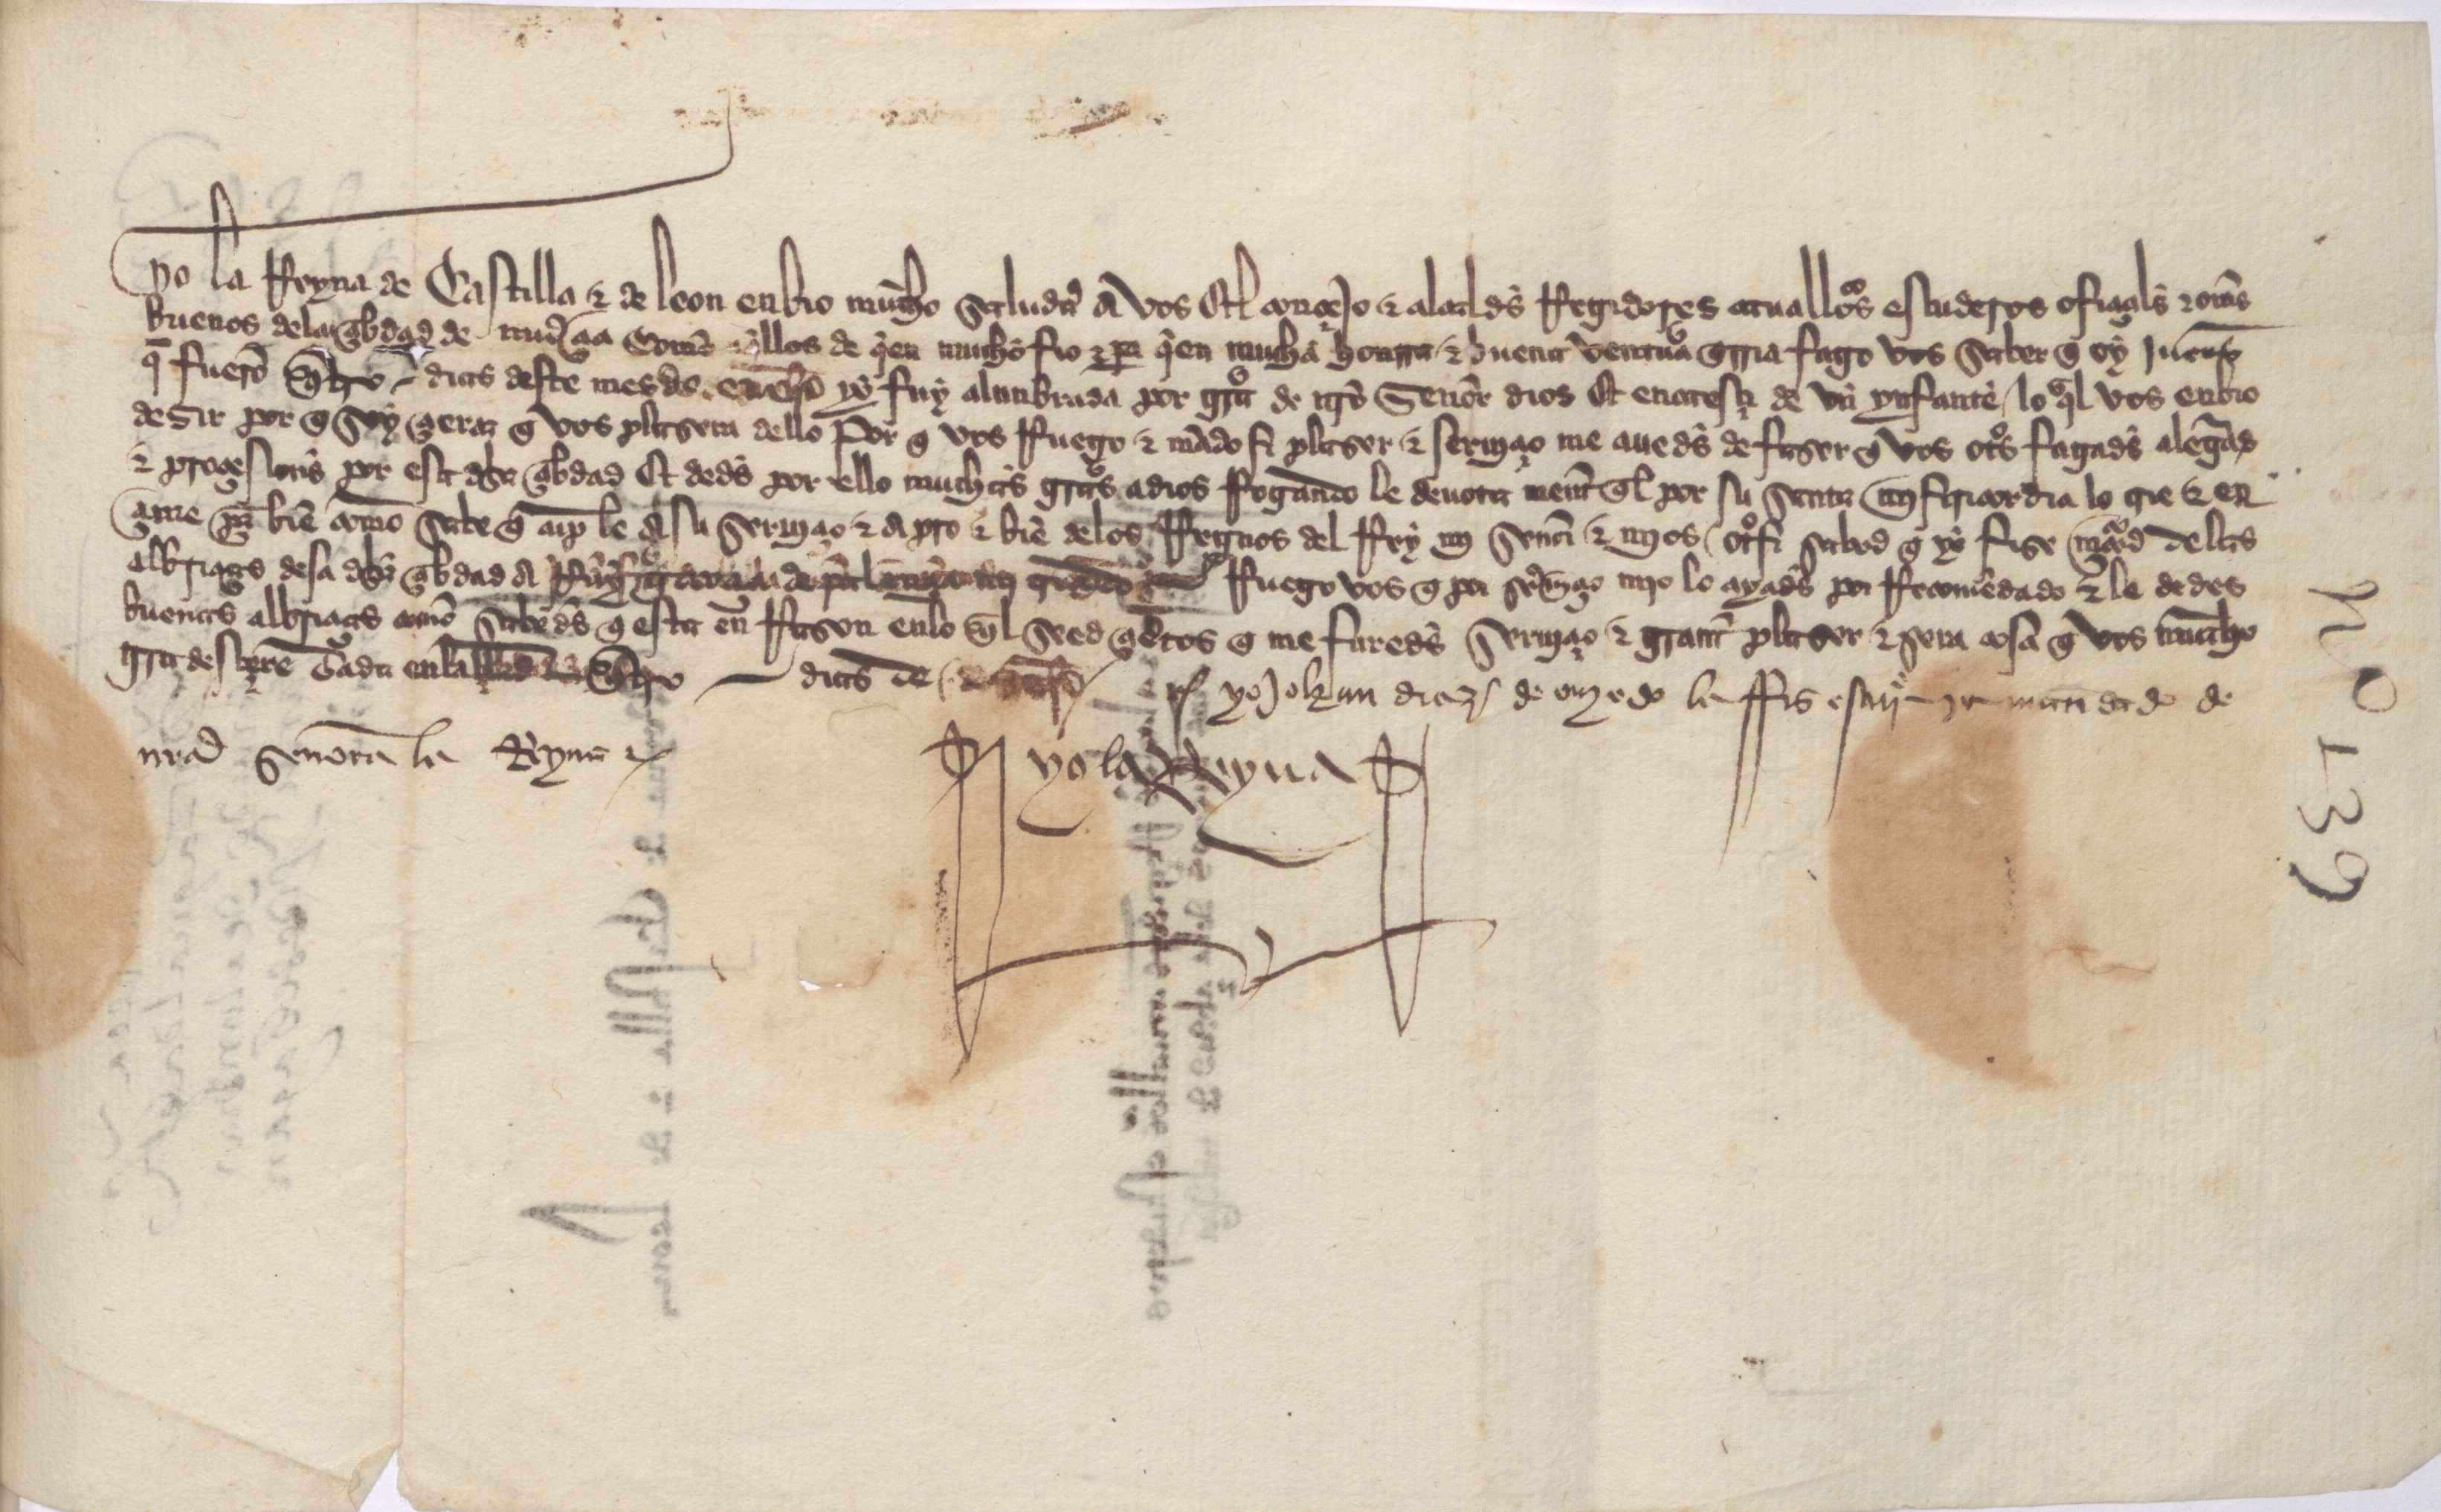 yo la Reyna de Castilla & de leon enbio mucho saludar A vos El conçejo & alcalds Regidores caualleros escuderos ofiçials & oms
buenos dela çibdad de murçia Commo aqllos de qen mucho fio & pa qen mucha honrra & buena ventura qrria fago vos saber q oy jueues
q fuero quatro dias deste mes de enero yo fuy alunbrada por gra de nro Senor dios Et encaesçi de vn ynfante lo ql vos enbio
desir por q soy çierta q vos plasera dello Por q vos Ruego & mado si plaser & seruiçio me aueds de faser q vos otros fagads alegrias
& proçesions por esa dha çibdad Et deds por ello muchas gras a dios Rogando le deuota ment ql por su santa misericordia lo crie & en
camine tan bie como sabe q cuple A su seruiçio & a pro & bie delos Regnos del Rey mi senor & mios otrosi sabed q yo fise merçed delas
albriçias desa dha çibdad A Ruego vos q por seruiçio mio lo ayads por Recomedado & le dedes
buenas albriçias como sabeds q esta en Rason enlo ql seed çiertos q me fareds seruiçio & grant plaser & sera cosa q vos mucho
gradesçere dada en quatro dias de enero yo johan diaz de la fis escriuir por mandado de
nra senora la Reyna
yo la Reyna
No 139